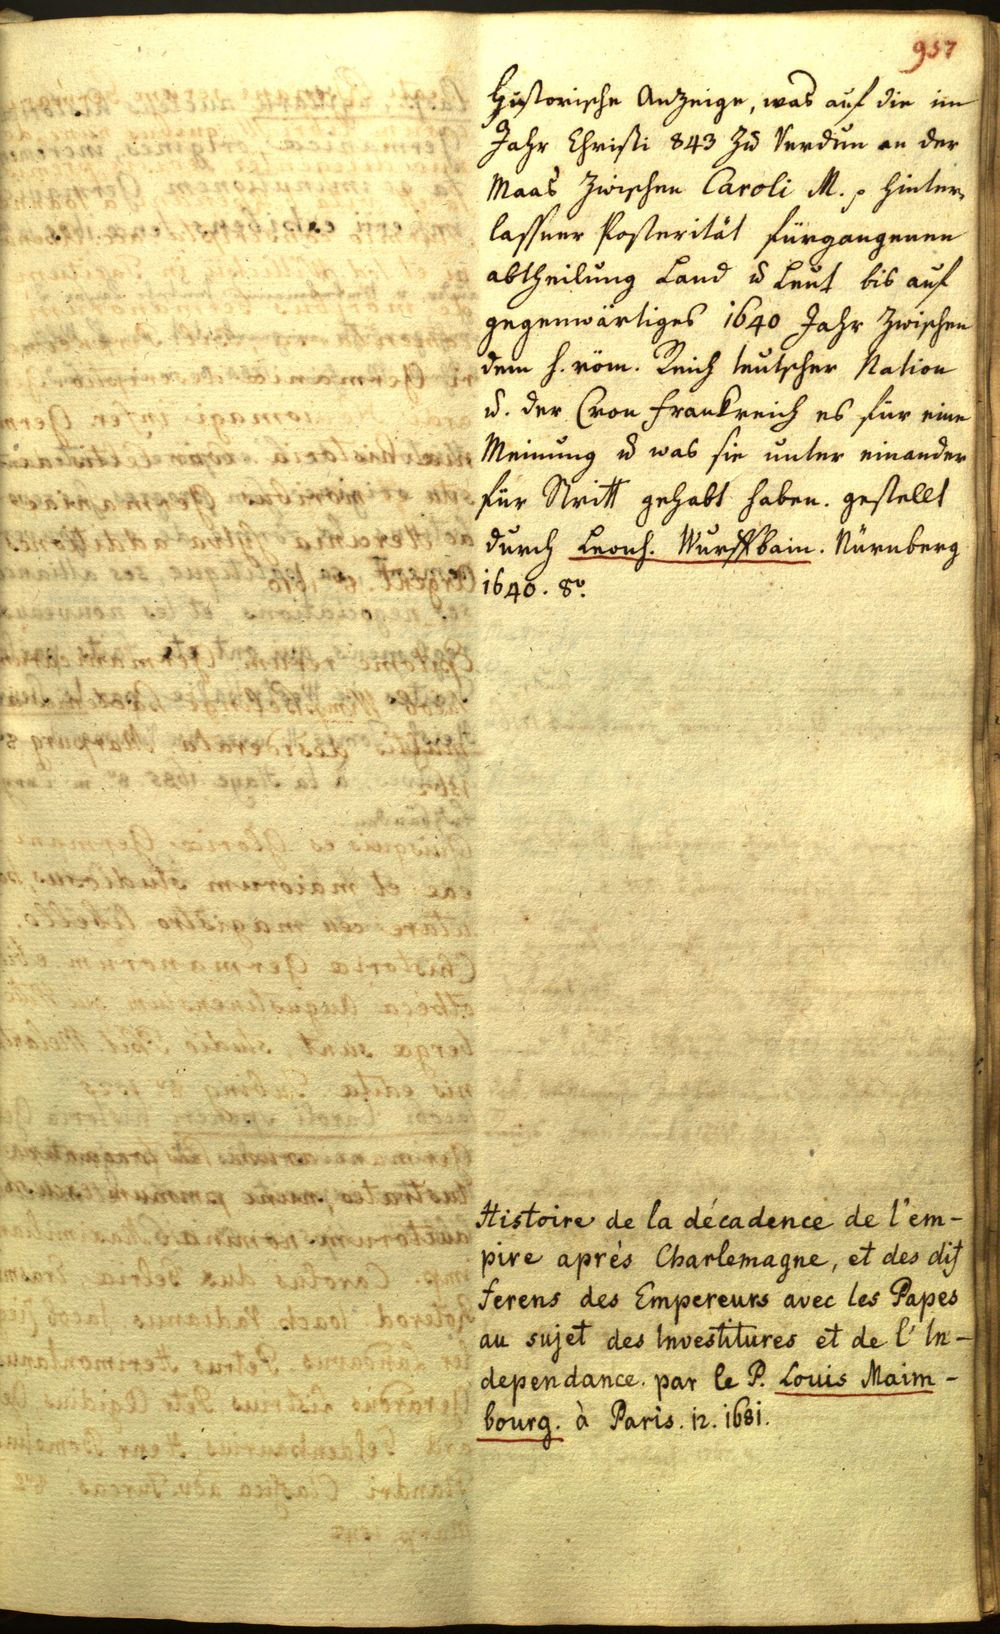 957
Historische Anzeige, was auf die im
Jahr Christi 843 zu Verdun an der
Maas zwischen Caroli M. hinter-
lassner Posterität fürgangenen
abtheilung Land u Leut bis auf
gegenwärtiges 1640 Jahr zwischen
dem h. röm. Reich teutscher Nation
u. der Cron Frankreich es für eine
Meinung u was sie unter einander
für Stritt gehabt haben. gestellt
durch Leonh. Wurffbain. Nürnberg
1640. 8º.
Histoire de la décadence de l'em-
pire aprés Charlemagne, et des dif
ferens des Empereurs avec les Papes
au sujet des Investitures et de l'In-
dependance. par le P. Louis Maim-
bourg. à Paris. 12. 1681.